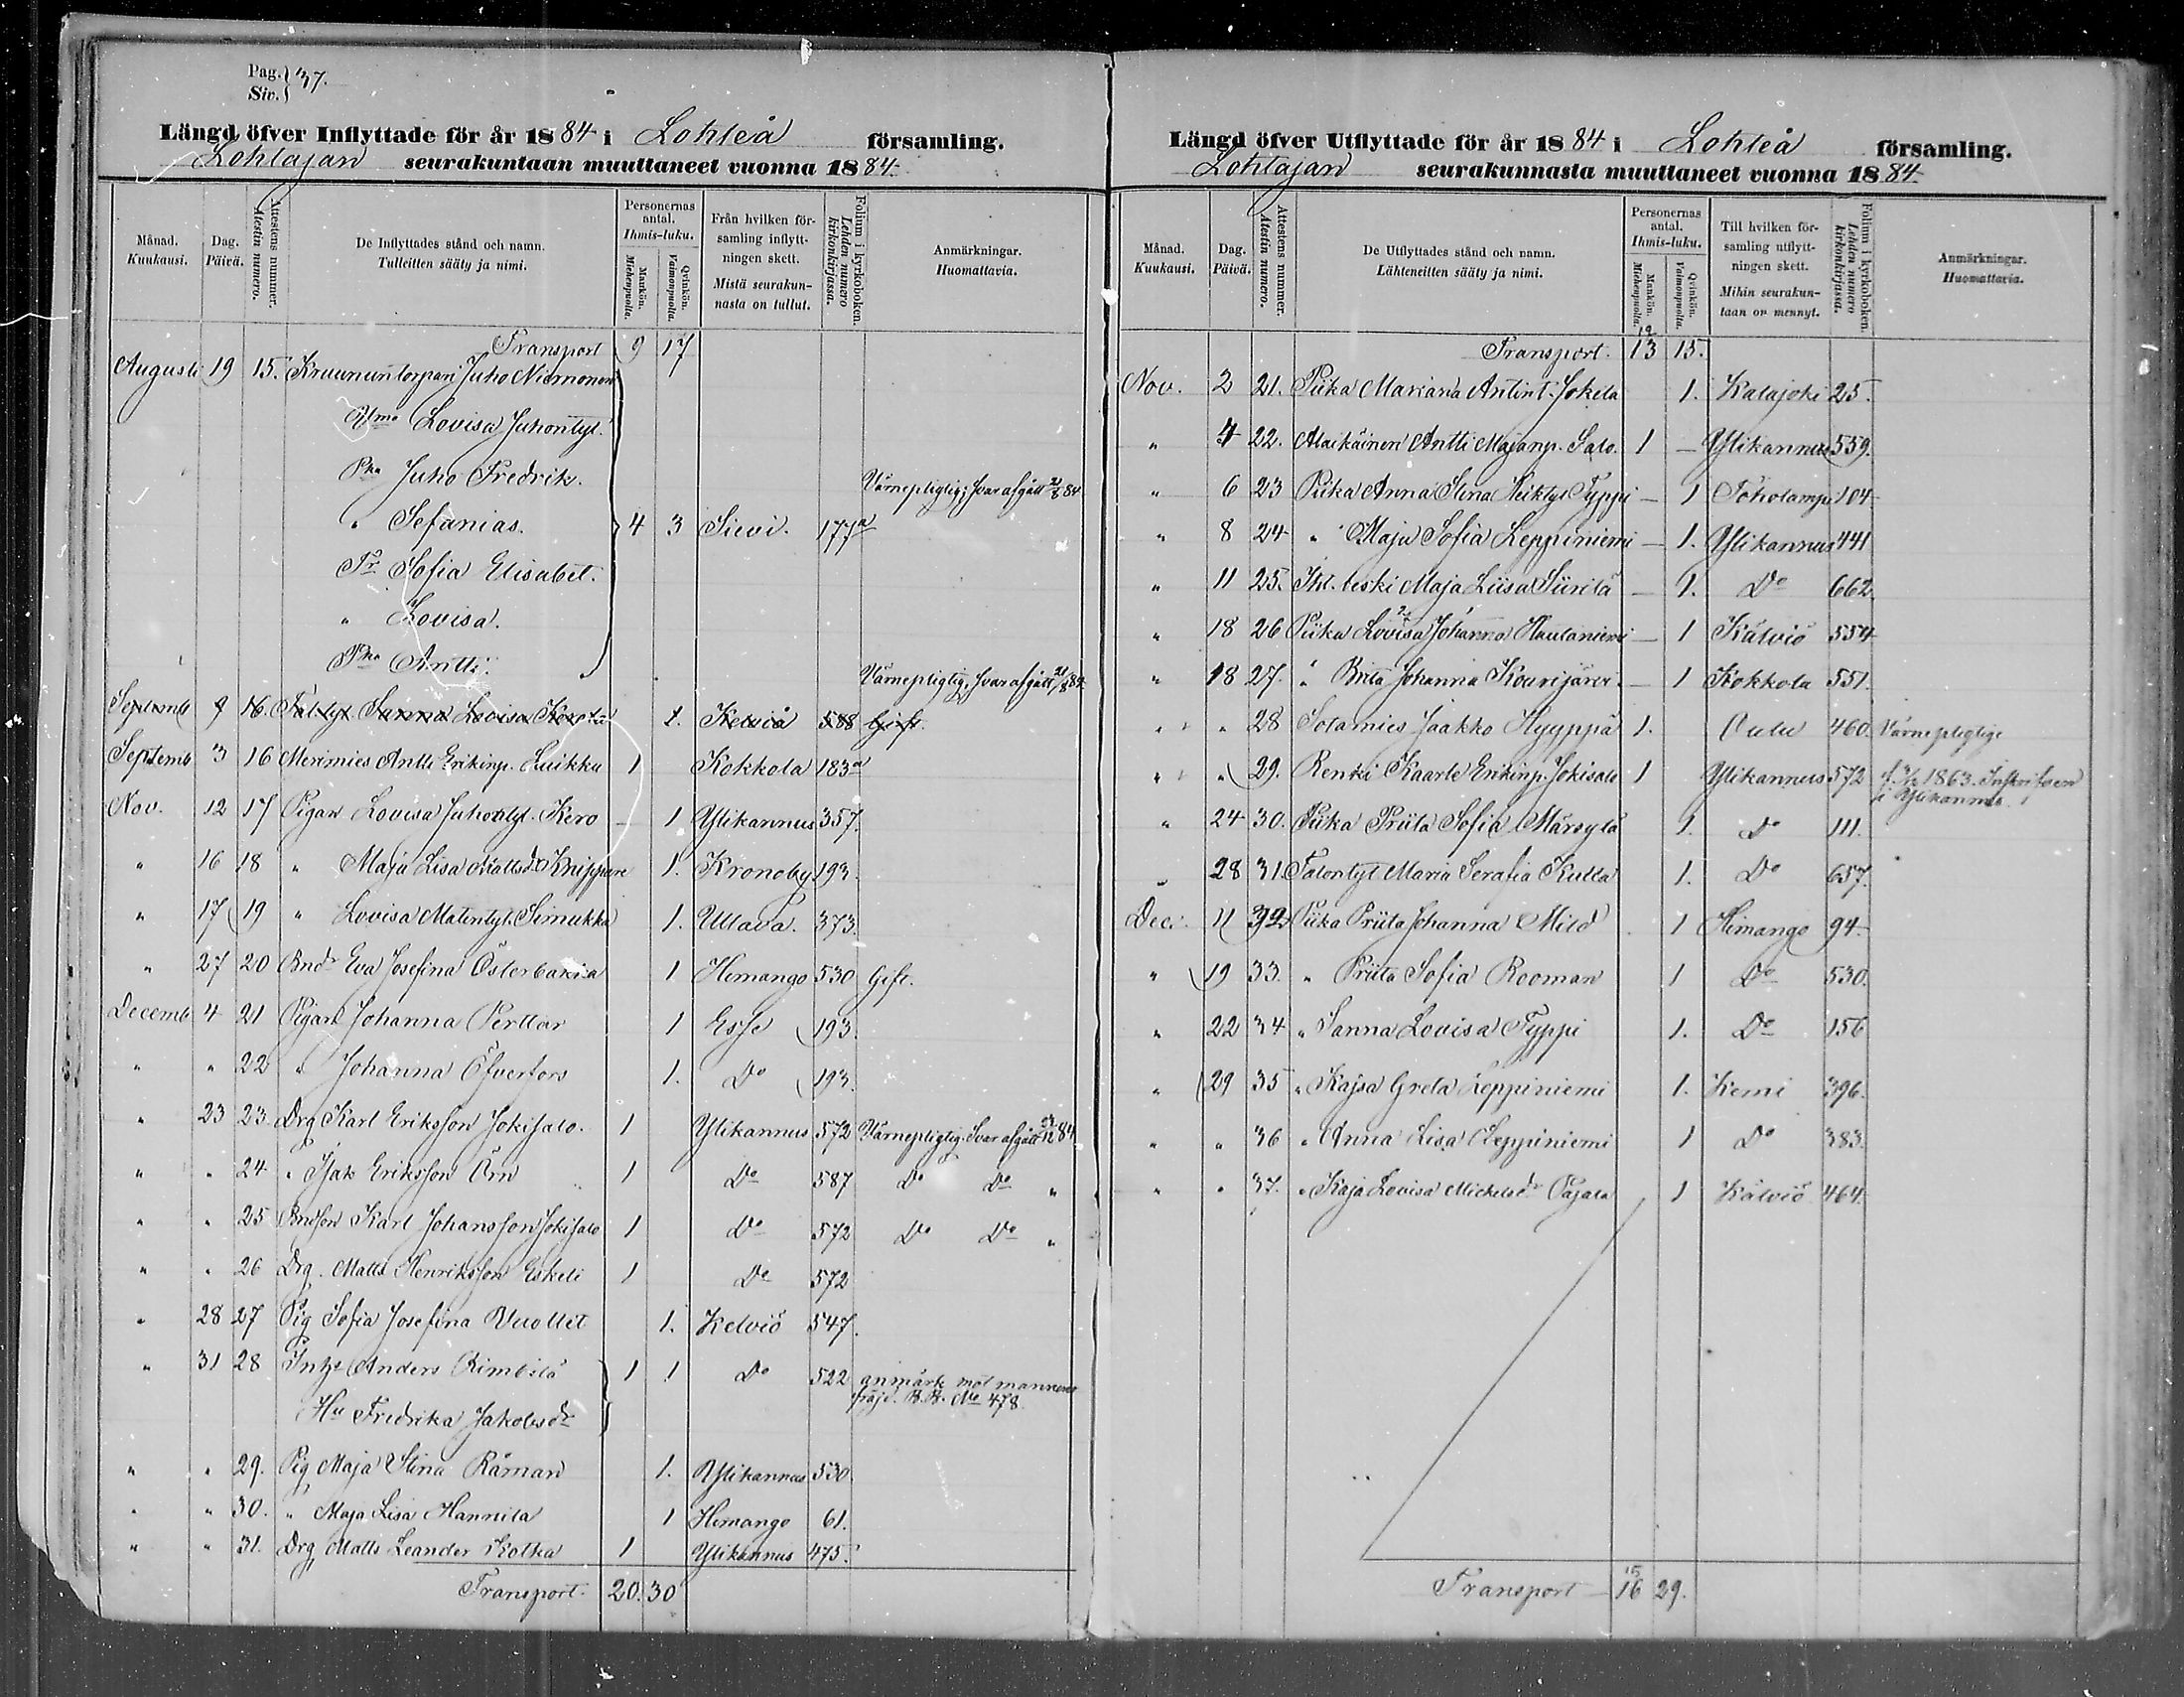 Pag. 37.
Siv.
Längd öfver Inflyttade för år 1884 i Lohteå församling.
Lohtajan seurakuntaan muuttaneet vuonna 1884.
Månad. Kuukausi.
Dag. Päivä.
Attestens nummer. Atestin numero.
De Inflyttades stånd och namn. Tulleitten sääty ja nimi.
Personernas antal. Ihmis-luku.
Mankön. Miehenpuolia.
Qvinkön. Vaimonpuolia.
Från hvilken församling inflyttningen skett. Mistä seurakunnasta on tullut.
Folium i kyrkoboken. Lehden numero kirkonkirjassa.
Anmärkningar. Huomattavia.
Transport 9 17
Augusti 19 15. Kruununtorpari Juho Niemonen
Vmo Lovisa Juhontyt.
Pka Juho Fredrik. Värnepligtig; svar afgått 21/8 84
" Sefanias. 4 3 Sievi. 177
Tr Sofia Elisabet.
" Lovisa.
Pka Antti. Värnepligtig, svar afgått 21/8 84.
Septemb 9 16. Tal. tyt. Sanna Lovisa 1. Kelviå 588 Gift.
Septemb 3 16 Merimies Antti Erikinp. Luikku 1 Kokkola 183
Nov. 12 17 Pigan Lovisa Juhontyt. Kero — 1 Ylikannus 357.
" 16 18 " Maja Lisa Mattsdr Knippare 1. Kronoby 193.
" 17 19 " Lovisa Matintyt. Simukka 1. Ullava. 373.
" 27 20 Bndr Eva Josefina Österbacka 1 Himango 530 Gift.
Decemb 4 21 Pigan Johanna Perttar 1 Esse 193.
" " 22 " Johanna Öfverfors 1. Do 193.
" 23 23. Drg Karl Eriksson Jokisalo. 1 Ylikannus 572 Värnepligtig. Svar afgått 84
" " 24 " Isak Eriksson Örn 1 Do 587 Do Do "
" " 25 Bndson Karl Johansson Jokisalo 1 Do 572 Do Do "
" " 26 Drg. Matts Henriksson Eskeli 1 Do 572
" 28 27 Pig Sofia Josefina Vuollet 1. Kelviö 547.
" 31 28 Inhs Anders Rimbilä 1 1 Do 522 anmärk. mot mannens
fräjd. No 478.
Hu Fredrika Jakobsdr
" " 29. Pig Maja Stina Råman 1. Ylikannus 530.
" " 30. " Maja Lisa Hannila 1 Himango 61.
" " 31. Drg Matts Leander Kotka 1 Ylikannus 475.
Transport. 20. 30
Längd öfver Utflyttade för år 1884 i Lohteå församling.
Lohtajan seurakunnasta muuttaneet vuonna 1884.
Månad. Kuukausi.
Dag. Päivä.
Attestens nummer. Atestin numero.
De Utflyttades stånd och namn. Lähteneitten sääty ja nimi.
Personernas antal. Ihmis-luku.
Mankön. Miehenpuolia.
Qvinkön. Vaimonpuolia.
Till hvilken församling utflyttningen skett. Mihin seurakuntaan on mennyt.
Folium i kyrkoboken. Lehden numero kirkonkirjassa.
Anmärkningar. Huomattavia.
12
Transport. 13 15.
Nov. 2 21. Piika Mariana Antint. Jokela 1. Kalajoki 25.
" 4 22. Alaikäinen Antti Majanp. Salo. 1 — Ylikannus 559.
" 6 23 Piika Anna Stina Heiktyt Typpi — 1 Toholampi 104
" 8 24 " Maja Sofia Leppiniemi — 1. Ylikannus 441
" 11 25. Itl. leski Maja Liisa Siirilä — 1. Do 662.
" 18 26 Piika Lovisa Johanna Hautaniemi — 1 Kälviö 554
" 18 27. " Brita Johanna Kourijärvi. — 1 Kokkola 551.
" " 28 Sotamies Jaakko Hyyppä 1. Oulu 460. Värnepligtige
" " 29. Renki Kaarle Erikinp. Jokisalo 1 Ylikannus 572 f. 1863. Inskrifven
i Ylikannus.
" 24 30. Piika Priita Sofia Märsylä 1. Do 111.
" 28 31. Talontyt Maria Serafia Kulla 1. Do 657.
Dec. 11 32 Piika Priita Johanna Mild 1 Himango 94
" 19 33. " Priita Sofia Rooman 1 Do 530.
" 22 34 " Sanna Lovisa Typpi 1. Do 156
" 29 35 " Kajsa Greta Leppiniemi 1. Kemi 396.
" " 36 " Anna Lisa Leppiniemi 1 Do 383.
" " 37. " Kaja Lovisa Mickelsdr Pajala 1 Kälviö 464.
15
Transport 16 29.